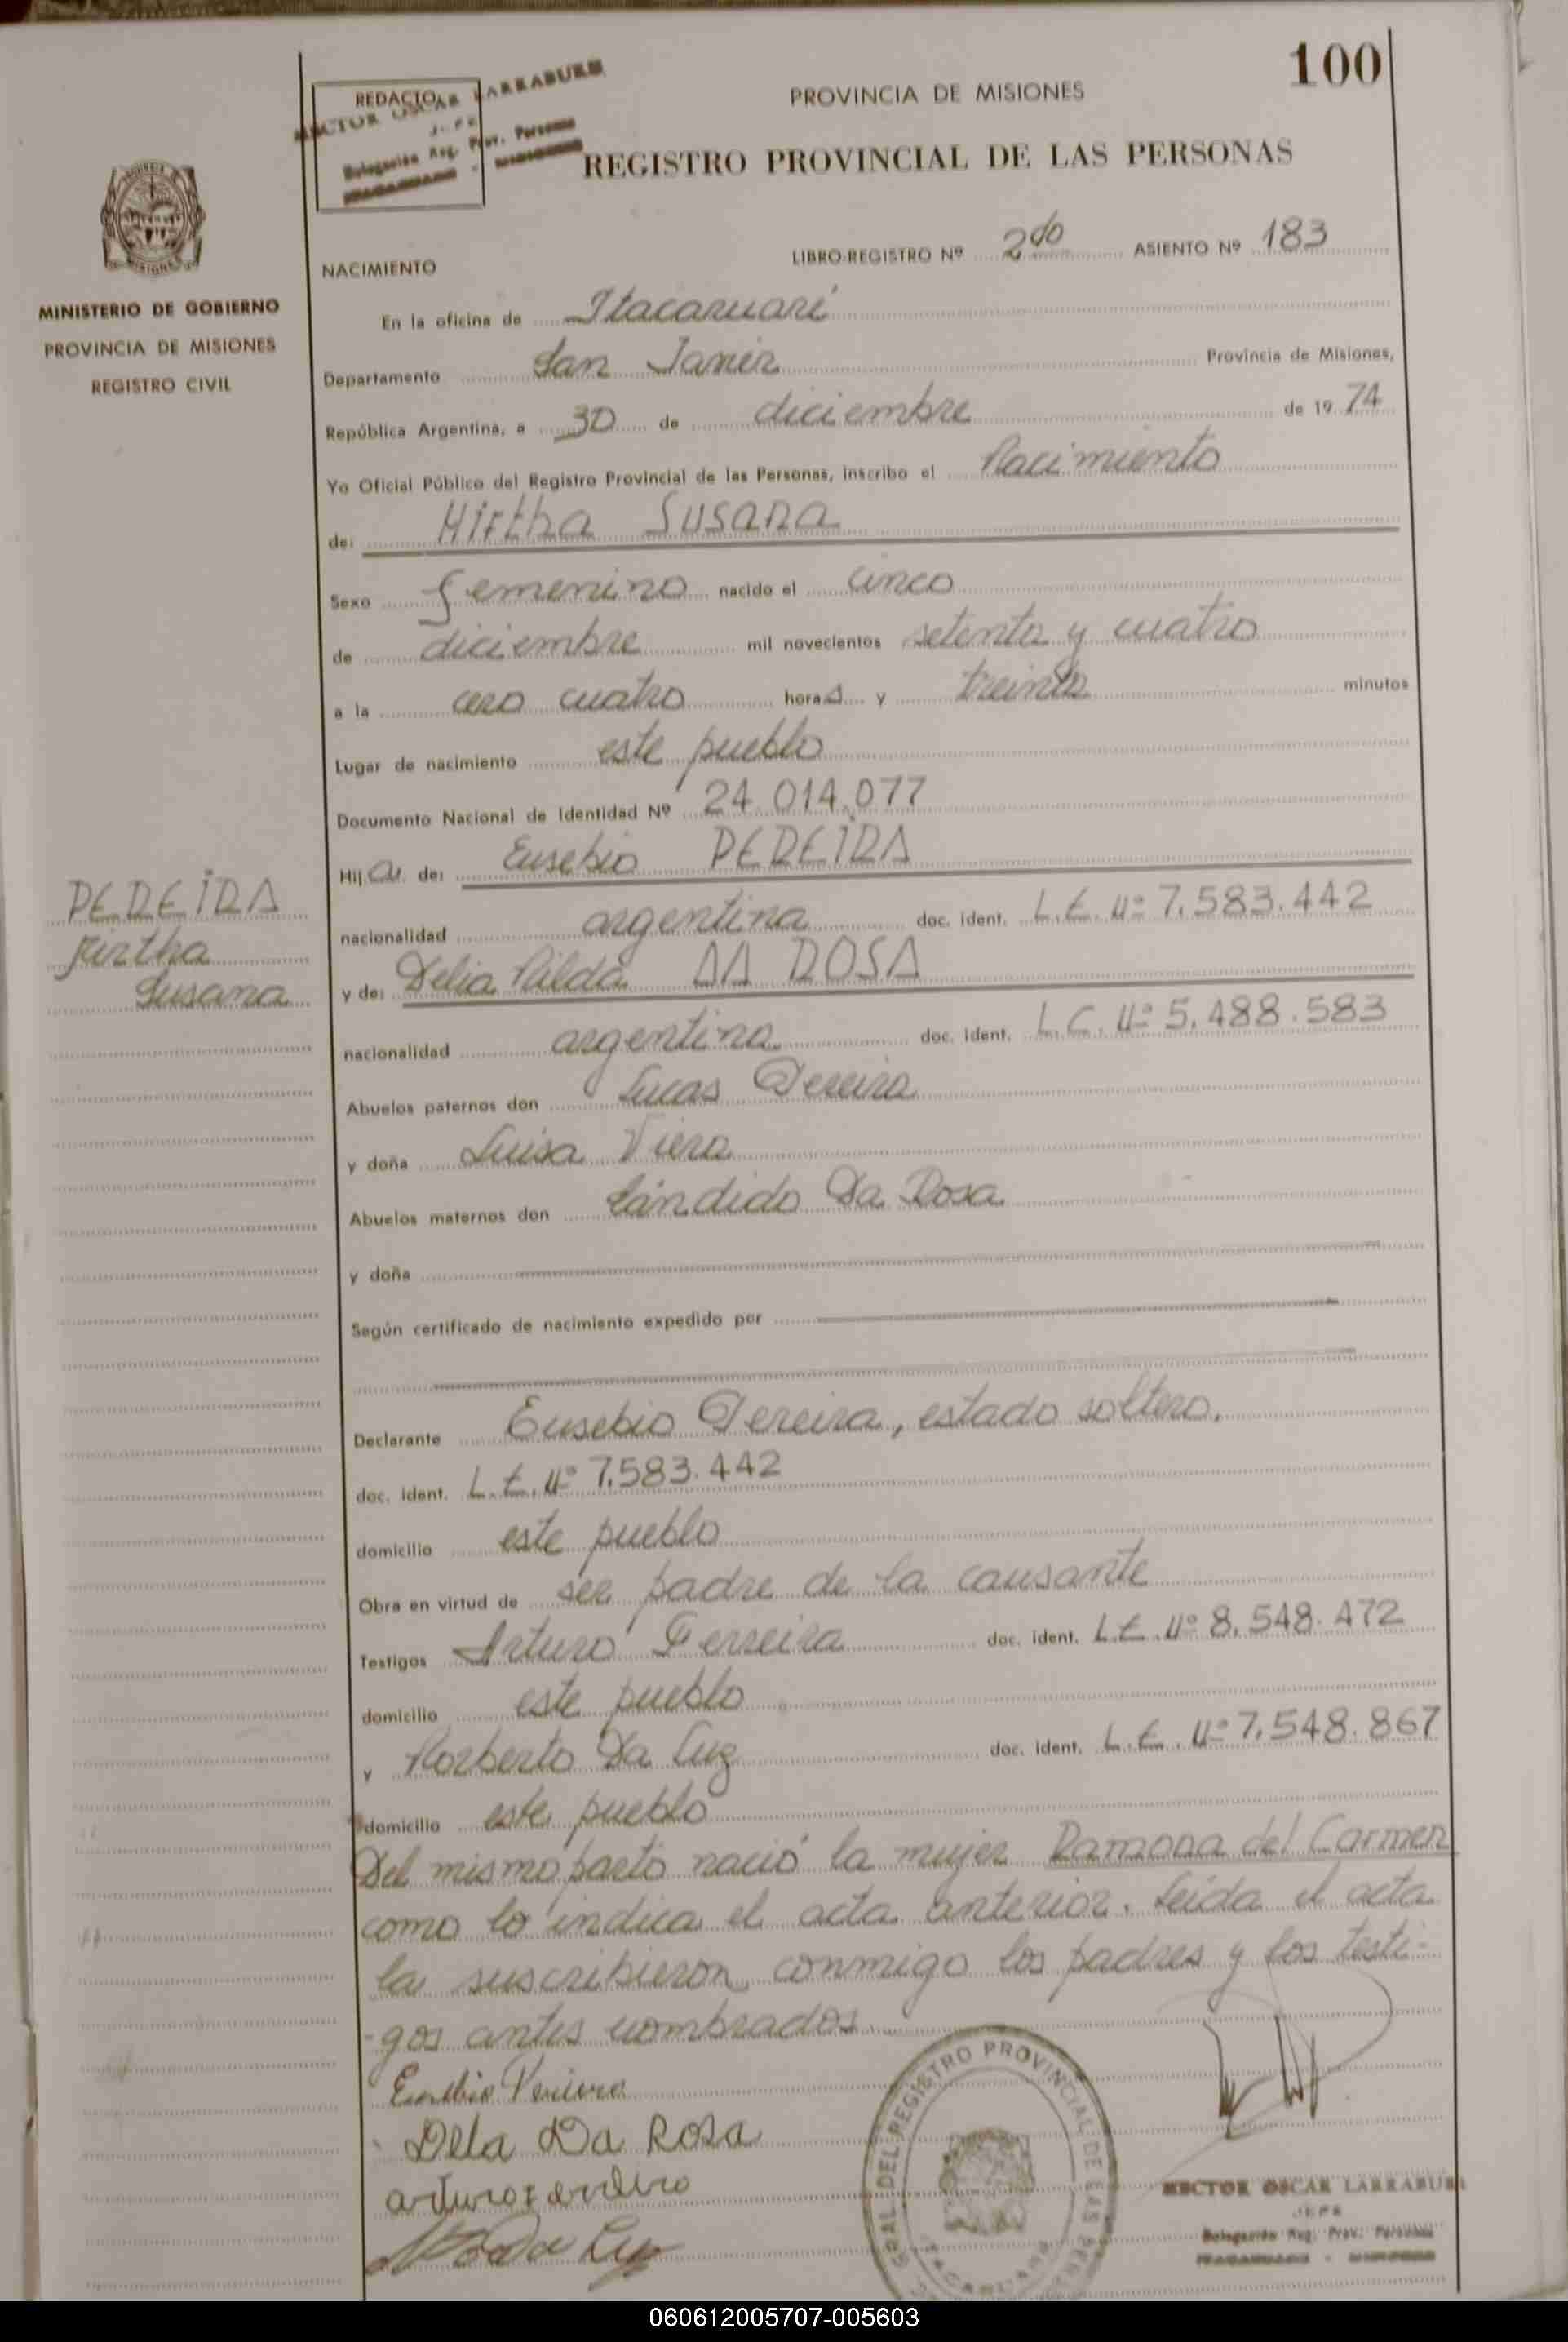 100
REDACTO
HECTOR OSCAR LARRABURE
JEFE
Delegación Reg. Prov. Personas
PROVINCIA DE MISIONES
REGISTRO PROVINCIAL DE LAS PERSONAS
MINISTERIO DE GOBIERNO
PROVINCIA DE MISIONES
REGISTRO CIVIL
LIBRO-REGISTRO Nº 2do ASIENTO Nº 183
NACIMIENTO
En la oficina de Itacaruaré
Departamento San Javier Provincia de Misiones,
República Argentina, a 30 de diciembre de 1974
Yo Oficial Público del Registro Provincial de las Personas, inscribo el Nacimiento
de: Mirtha Susana
Sexo femenino nacido el cinco
de diciembre mil novecientos setenta y cuatro
a la cero cuatro horas y treinta minutos
Lugar de nacimiento este pueblo
Documento Nacional de Identidad Nº 24.014.077
Hija de: Eusebio PEREIRA
PEREIRA
Mirtha
Susana
nacionalidad argentina doc. ident. L.E. Nº 7.583.442
y de: Delia Nilda DA ROSA
nacionalidad argentina doc. ident. L.C. Nº 5.488.583
Abuelos paternos don Lucas Pereira
y doña Luisa Viera
Abuelos maternos don Cándido Da Rosa
y doña
Según certificado de nacimiento expedido por
Declarante Eusebio Pereira, estado soltero.
doc. ident. L.E. Nº 7.583.442
domicilio este pueblo
Obra en virtud de ser padre de la causante
Testigos Arturo Ferreira doc. ident. L.E. Nº 8.548.472
domicilio este pueblo
y Norberto Da Luz doc. ident. L.E. Nº 7.548.867
domicilio este pueblo
Del mismo parto nació la mujer Ramona del Carmen
como lo indica el acta anterior. Leída el acta
la suscribieron conmigo los padres y los testi-
-gos antes nombrados.
Eusebio Pereira
Dela Da Rosa
arturo ferreira
Da Luz
GRAL DEL REGISTRO PROVINCIAL DE LAS PERS
HECTOR OSCAR LARRABURE
JEFE
Delegación Reg. Prov. Personas
060612005707-005603